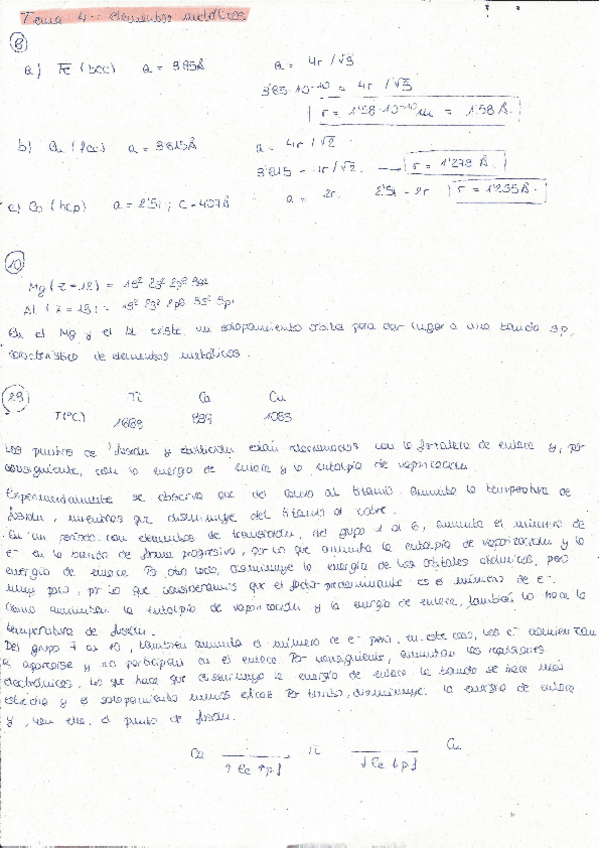 Tema 4: elementos metálicos
8
a) Fe (bcc) a = 3'85Å a = 4r /√3
3'85·10⁻¹⁰ = 4r /√3
r = 1'58·10⁻¹⁰ m = 1'58 Å.
b) (fcc) a = 3'615Å a = 4r/√2
3'615 = 4r/√2 r = 1'278 Å.
c) Co (hcp) a = 2'51 ; c = 4'07Å a = 2r 2'51 = 2r r = 1'255Å.
10
Mg (z = 12) = 1s² 2s² 2p⁶ 3s²
Al (z = 13) = 1s² 2s² 2p⁶ 3s² 3p¹
En el Mg y el Al existe un solapamiento orbital para dar lugar a una banda sp,
característico de elementos metálicos.
23
Ti Ca Cu
T(ºC) 1083
Los puntos de fusión y ebullición están relacionados con la fortaleza de enlace y, por
consiguiente, con la energía de enlace y la entalpía de vaporización.
Experimentalmente se observa que del calcio al titanio aumenta la temperatura de
fusión, mientras que disminuye del titanio al cobre.
En un periodo con elementos de transición, del grupo 1 al 6, aumenta el número de
e⁻ en la banda de forma progresiva, por lo que aumenta la entalpía de vaporización y la
energía de enlace. Por otro lado, disminuye la energía de los orbitales atómicos, pero
muy poco, por lo que consideramos que el factor predominante es el número de e⁻.
Como aumentan la entalpía de vaporización y la energía de enlace, también lo hace la
temperatura de fusión.
Del grupo 7 al 10, también aumenta el número de e⁻ pero, en este caso, los e⁻ comienzan
a aparearse y no participan en el enlace. Por consiguiente, aumentan las repulsiones
electrónicas, lo que hace que disminuya la energía de enlace. La banda se hace más
estrecha y el solapamiento menos eficaz. Por tanto, disminuye la energía de enlace
y, con ella, el punto de fusión.
Ca Ti Cu
↑Ec ↑pf ↓Ec ↓pf